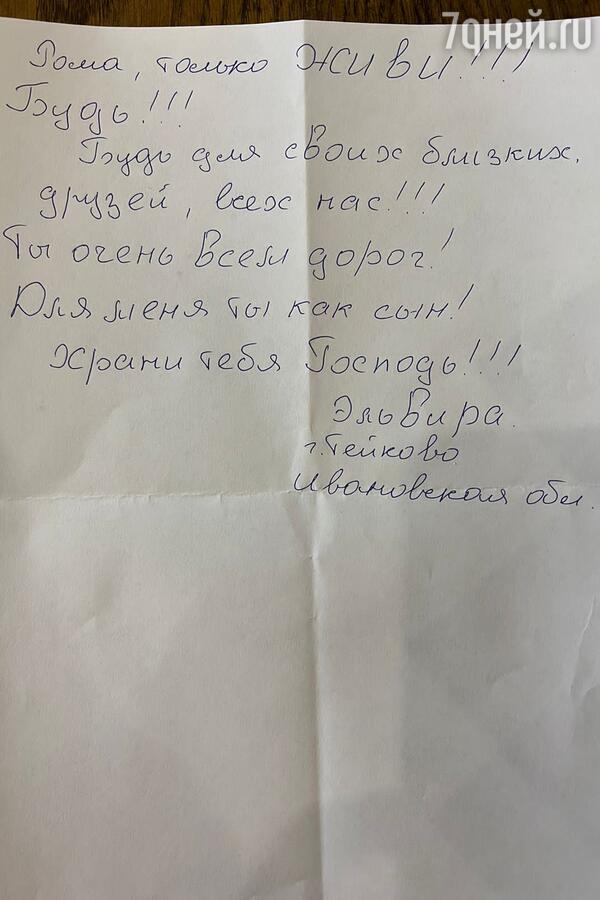 7дней.ru
Рома, только ЖИВИ!!!
Будь!!!
Будь для своих близких,
друзей, всех нас!!!
Ты очень всем дорог!
Для меня ты как сын!
Храни тебя Господь!!!
Эльвира.
г. Тейково
Ивановская обл.